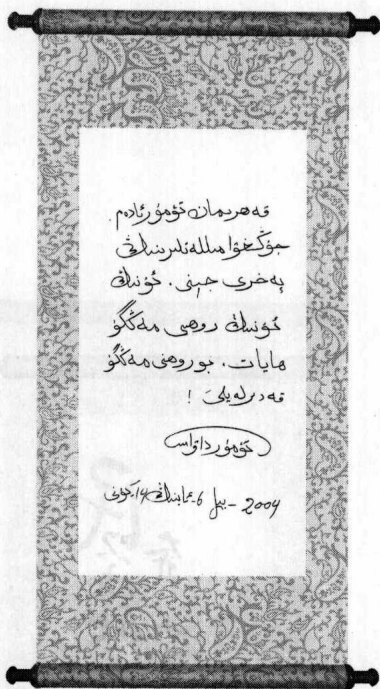 قەھرىمان تۆمۈر ئادەم
جۇڭخۇا مىللەتلىرىنىڭ
پەخرى جېنى. ئۇنىڭ
ئۇنىڭ روھى مەڭگۈ
ھايات. بۇ روھنى مەڭگۈ
قەدىرلەيلى !
تۆمۈر داۋامەت
2004 - يىل 6 - ئاينىڭ 14 - كۈنى